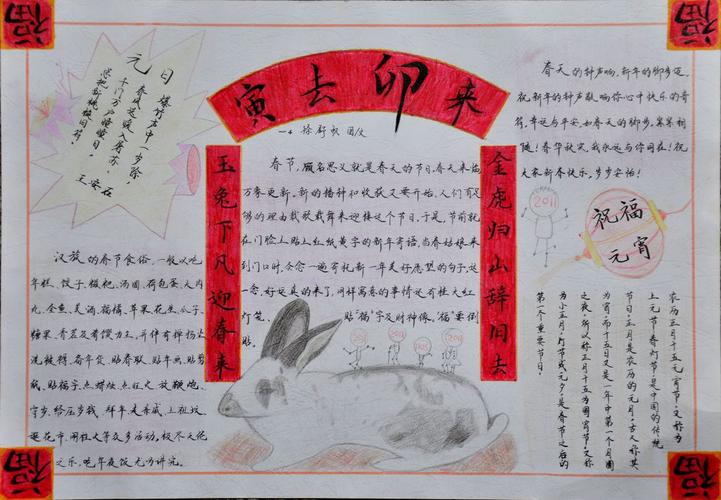 福
福
寅去卯来
元日
爆竹声中一岁除，
春风送暖入屠苏，
千门万户曈曈日，
总把新桃换旧符。
王安石
春天的钟声响，新年的脚步迈，
祝新年的钟声敲响你心中快乐的音
符，幸运与平安，如春天的脚步，紧紧相
随！春华秋实，我永远与你同在！祝
大家新春快乐，步步安怡！
玉兔下凡迎春来
春节，顾名思义就是春天的节日。春天来临
万象更新，新的播种和收获又要开始。人们有足
够的理由载歌载舞来迎接这个节日。于是，节前就
在门脸上贴上红纸黄字的新年寄语。当春姑娘来
到门口时，会念一遍寄托新一年美好愿望的句子，这
一念，好运真的来了。同样寓意的事情还有挂大红
灯笼、
贴“福”字及财神像，“福”要倒
贴。
金虎归山辞旧去
2011
祝福
元宵
汉族的春节食俗，一般以吃
年糕、饺子、糍粑、汤圆、荷包蛋、大肉
丸、全鱼、美酒、福橘、苹果、花生、瓜子、
糖果、香茗及肴馔为主，并伴有掸扬尘、
洗被褥、备年货、贴春联、贴年画、贴剪
纸、贴福字、点蜡烛、点旺火、放鞭炮、
守岁、给压岁钱、拜年、走亲戚、上祖坟、
逛花市、闹社火等众多活动，极尽天伦
之乐，吃年夜饭尤为讲究。
农历正月十五元宵节，又称为
上元节，春灯节，是中国的传统
节日。正月是农历的元月，古人称其
为宵，而十五日又是一年中第一个月圆
之夜，所以称正月十五为元宵节。又称
为小正月、灯节或元夕，是春节之后的
第一个重要节日。
2011
2011
2011
2011
福
福